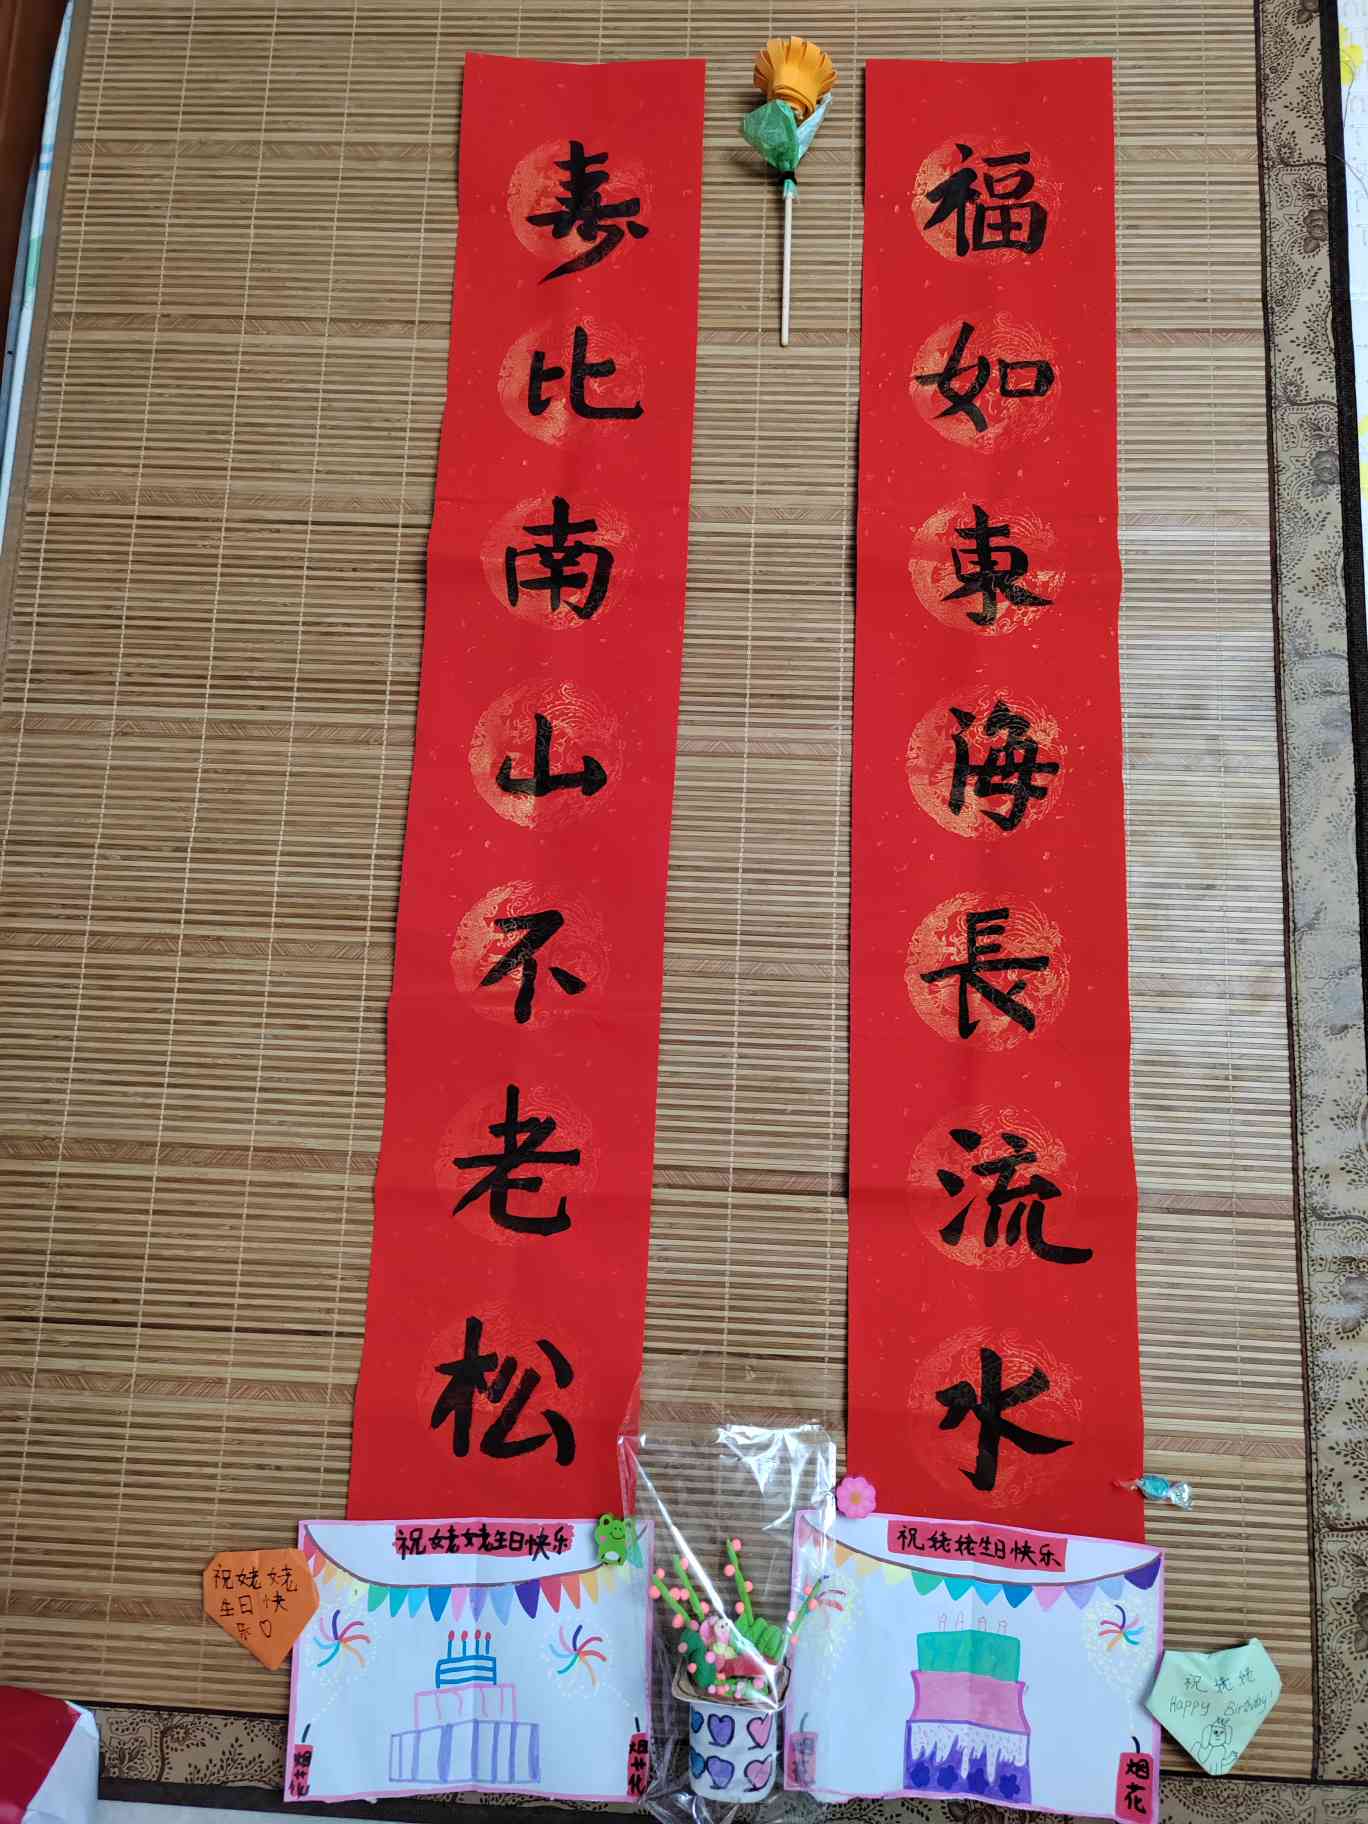 福如東海長流水
寿比南山不老松
祝姥姥生日快乐
祝姥姥生日快乐
祝姥姥
生日快
乐♡
祝姥姥
Happy Birthday!
烟花
烟花
烟花